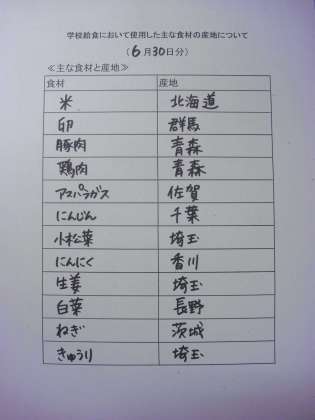 学校給食において使用した主な食材の産地について
(6月30日分)
≪主な食材と産地≫
食材 産地
米 北海道
卵 群馬
豚肉 青森
鶏肉 青森
アスパラガス 佐賀
にんじん 千葉
小松菜 埼玉
にんにく 香川
生姜 埼玉
白菜 長野
ねぎ 茨城
きゅうり 埼玉